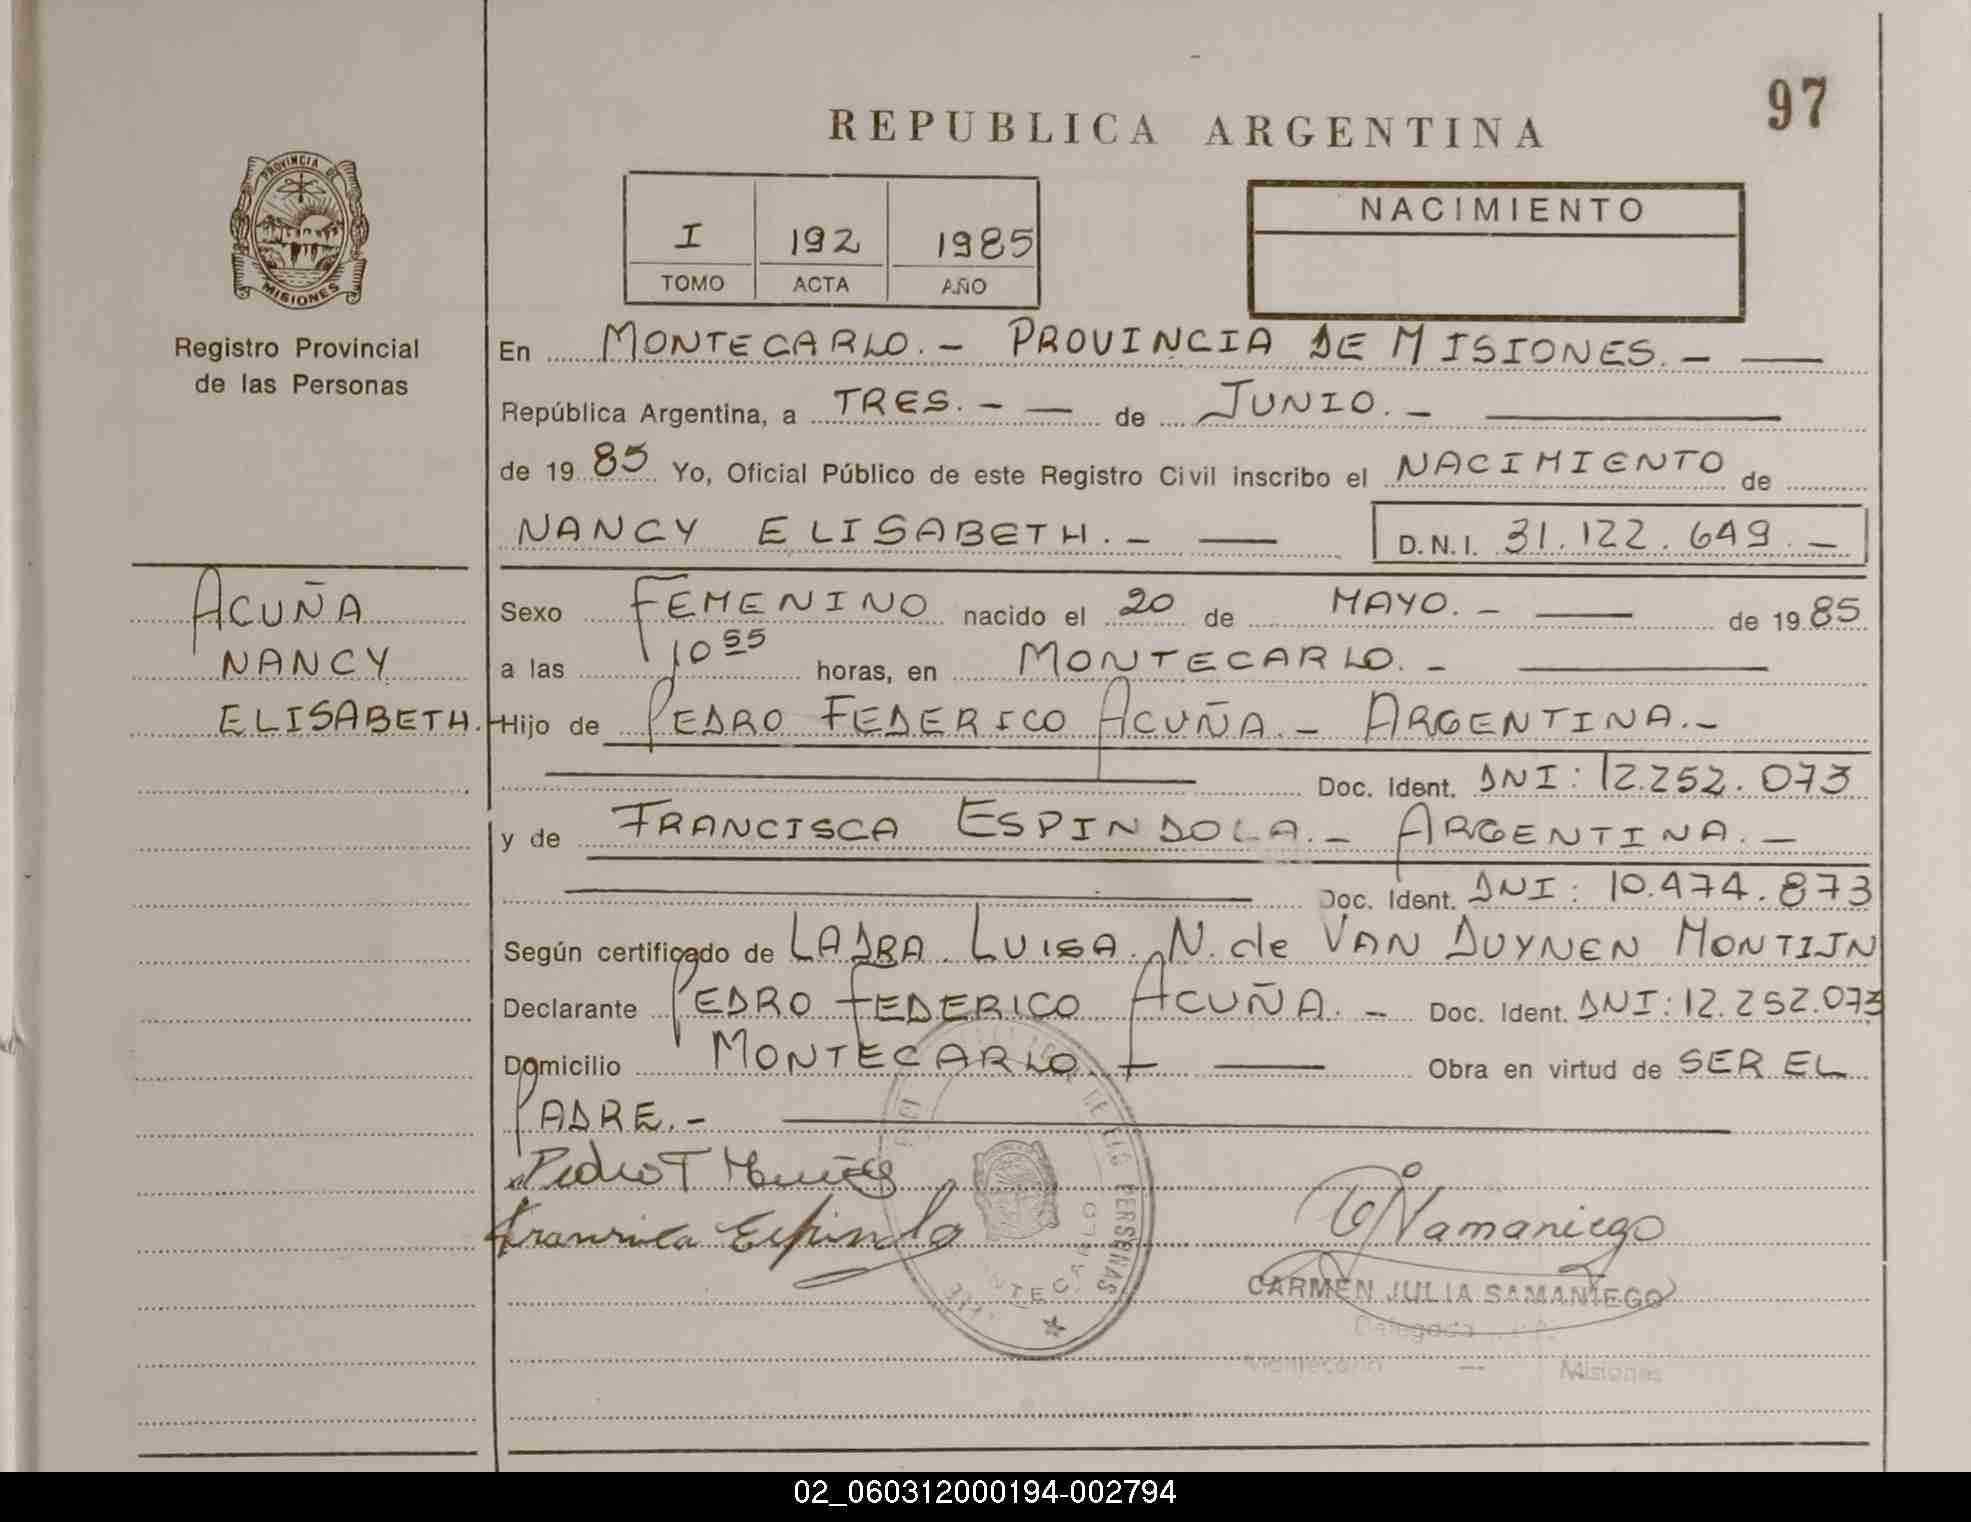 97
REPUBLICA ARGENTINA
PROVINCIA DE
MISIONES
Registro Provincial
de las Personas
I 192 1985
TOMO ACTA AÑO
NACIMIENTO
En MONTECARLO.- PROVINCIA DE MISIONES.- —
República Argentina, a TRES.- — de JUNIO.- —
de 19 85 Yo, Oficial Público de este Registro Civil inscribo el NACIMIENTO de
NANCY ELISABETH.- — D.N.I. 31.122.649.-
ACUÑA
NANCY
ELISABETH.-
Sexo FEMENINO nacido el 20 de MAYO.- — de 19 85
a las 10 55 horas, en MONTECARLO.- —
Hijo de PEDRO FEDERICO ACUÑA.- ARGENTINA.-
— Doc. Ident. DNI: 12.252.073
y de FRANCISCA ESPINDOLA.- ARGENTINA.-
— Doc. Ident. DNI: 10.474.873
Según certificado de LADRA. LUISA. N. de VAN DUYNEN MONTIJN
Declarante PEDRO FEDERICO ACUÑA.- Doc. Ident. DNI: 12.252.073
Domicilio MONTECARLO.- — Obra en virtud de SER EL
PADRE.- —
Pedro
Francisca Espindola
Samaniego
DE LAS PERSONAS
CARMEN JULIA SAMANIEGO
Delegada
Montecarlo — Misiones
02_060312000194-002794